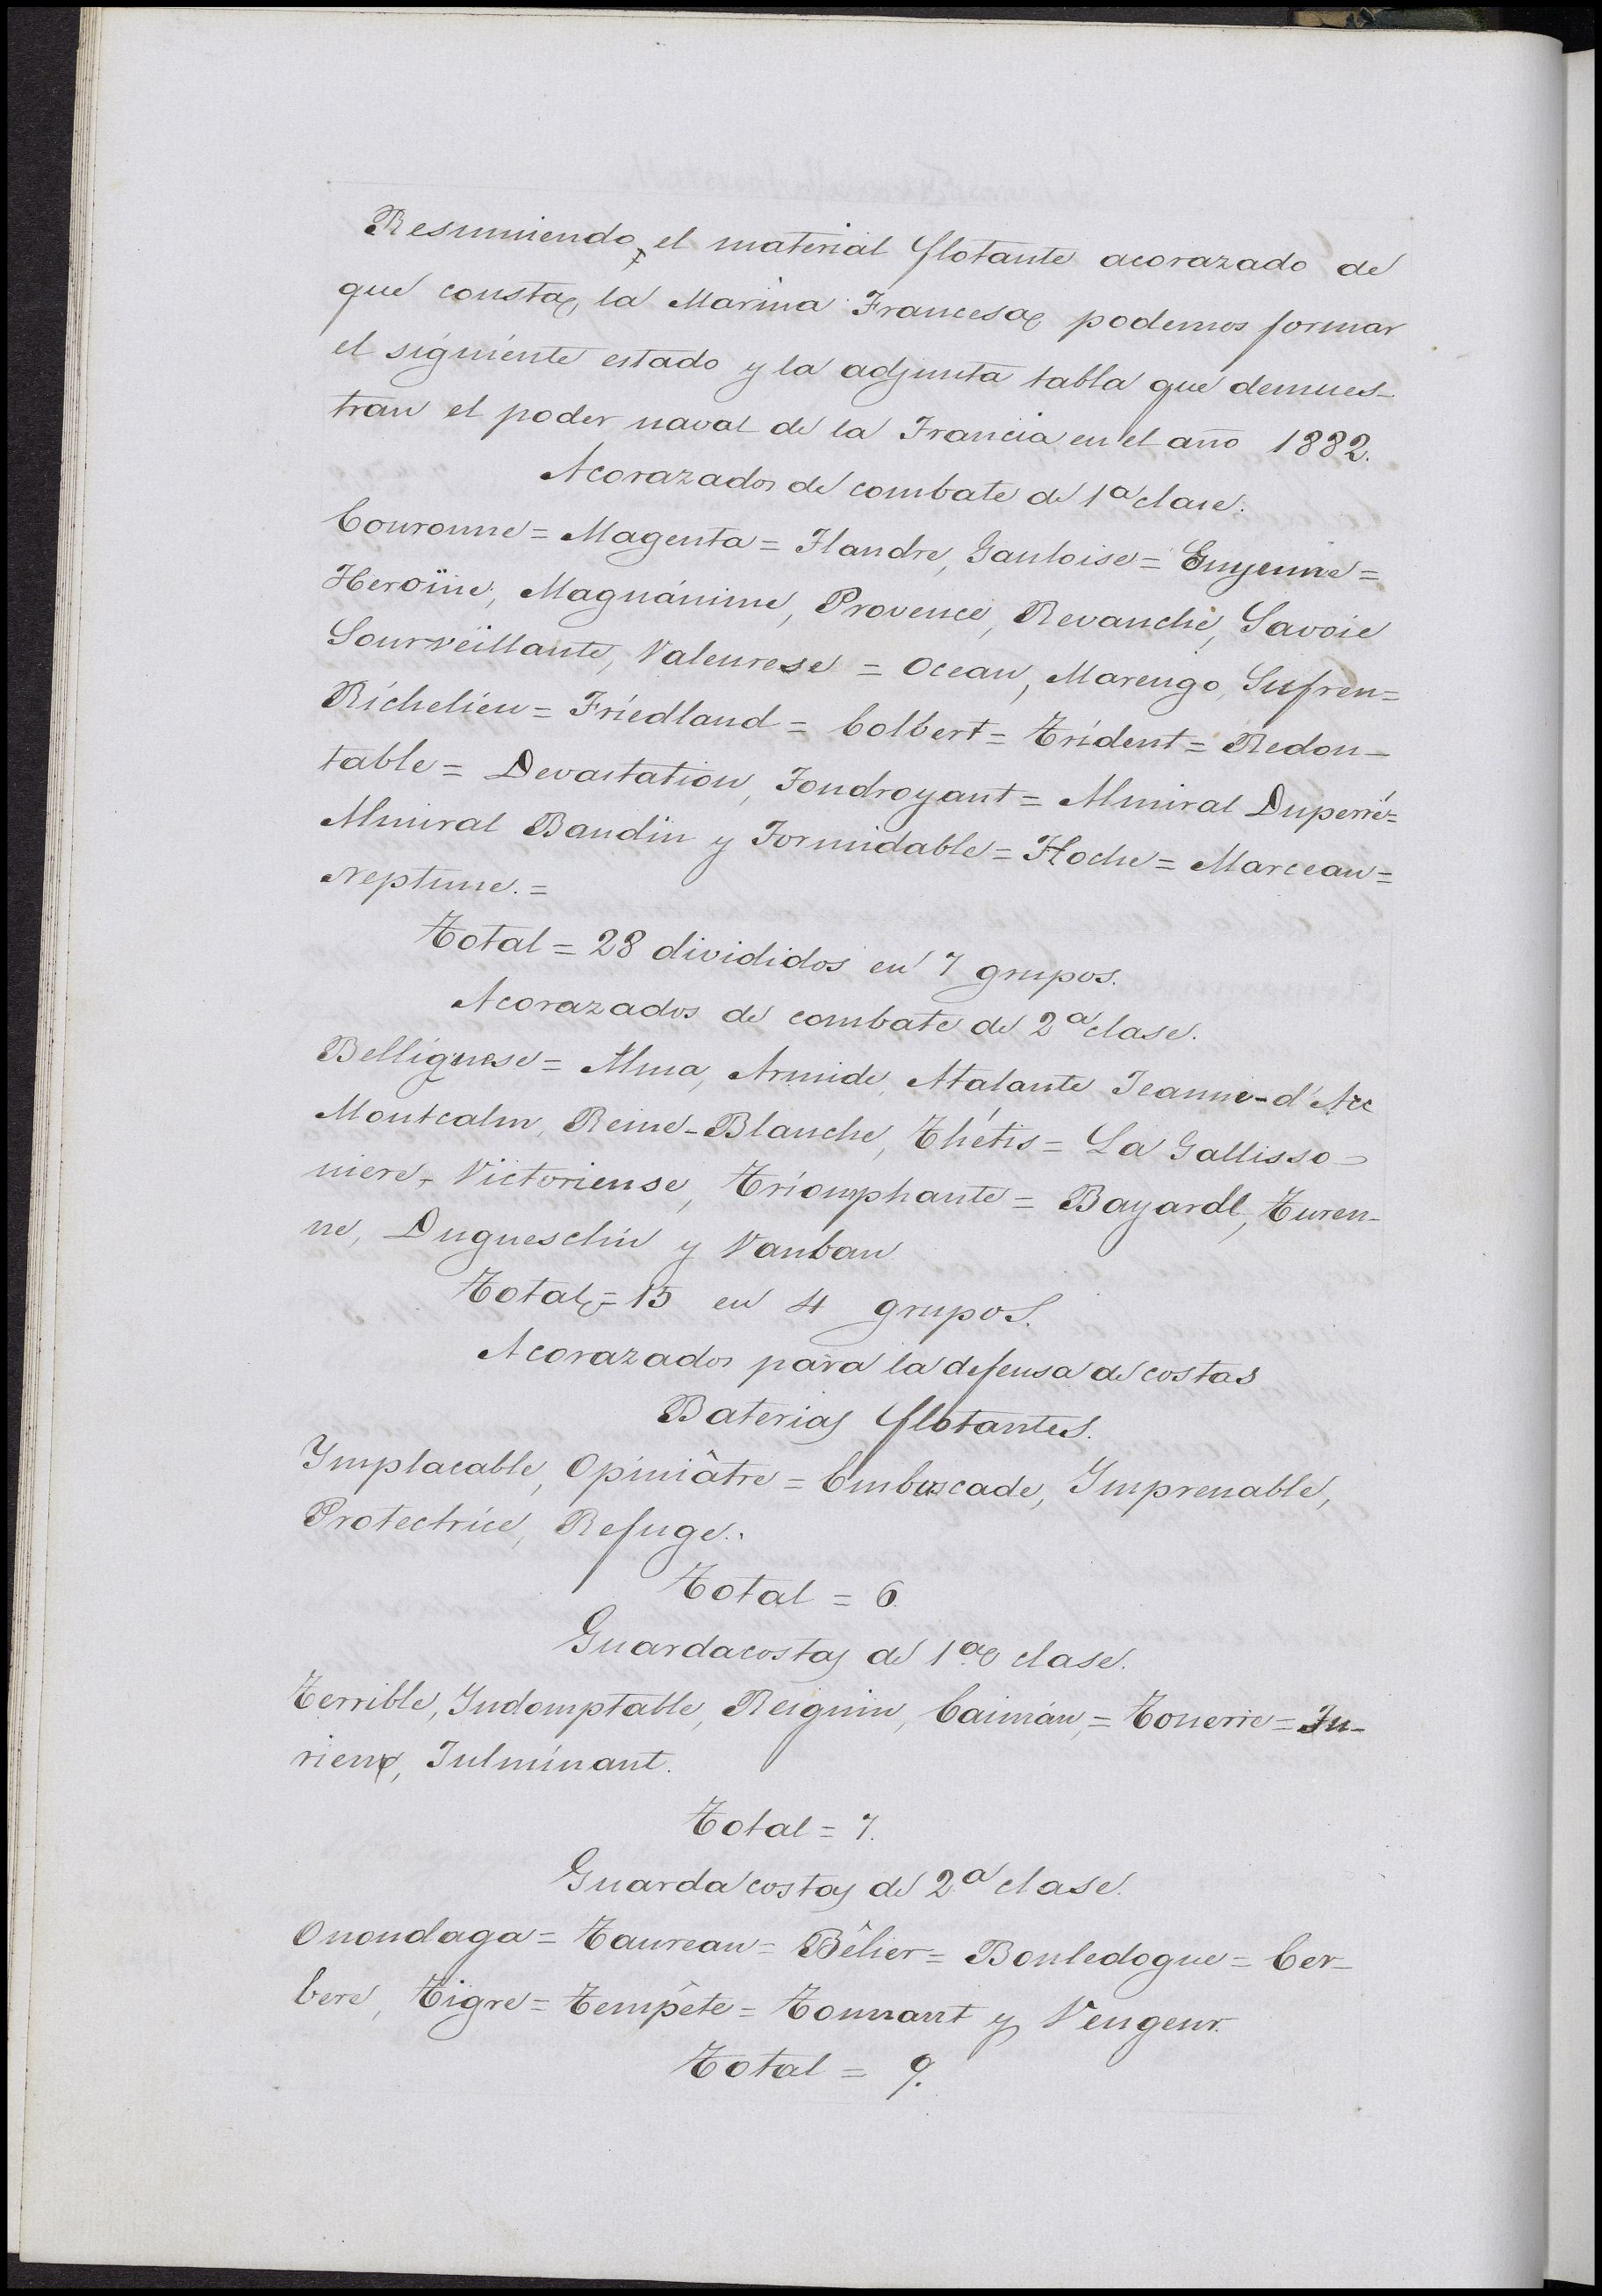 Resumiendo, el material flotante acorazado de
que consta, la Marina Francesa, podemos formar
el siguiente estado y la adjunta tabla que demues-
tran el poder naval de la Francia en el año 1882.
Acorazados de combate de 1ª clase.
Couronne = Magenta = Flandre, Gauloise = Guyenne =
Heroïne, Magnánime, Provence, Revanche, Savoie
Sourveillante, Valeurese = Ocean, Marengo, Sufren =
Richelieu = Friedland = Colbert = Trident = Redou-
table = Devastation, Foudroyant = Almiral Duperré =
Almiral Baudin y Formidable = Hoche = Marceau =
Neptune. =
Total = 28 divididos en 7 grupos.
Acorazados de combate de 2ª clase.
Belliguese = Alma, Armide, Atalante Jeanne-d'Arc
Montcalm, Reine-Blanche, Thétis = La Gallisso-
niere, Victorieuse, Triomphante = Bayard, Turen-
ne, Dugueschin y Vauban
Total = 15 en 4 grupos.
Acorazados para la defensa de costas
Baterias flotantes.
Implacable, Opiniâtre = Embuscade, Imprenable,
Protectrice, Refuge.
Total = 6.
Guardacostas de 1ª clase.
Terrible, Indomptable, Reiguin, Caimán, = Tonerre = Fu-
rieux, Fulminant.
Total = 7.
Guardacostas de 2ª clase.
Onondaga = Taureau = Bêlier = Bouledogue = Cer-
bere, Tigre = Tempête = Tonnant y Vengeur.
Total = 9.